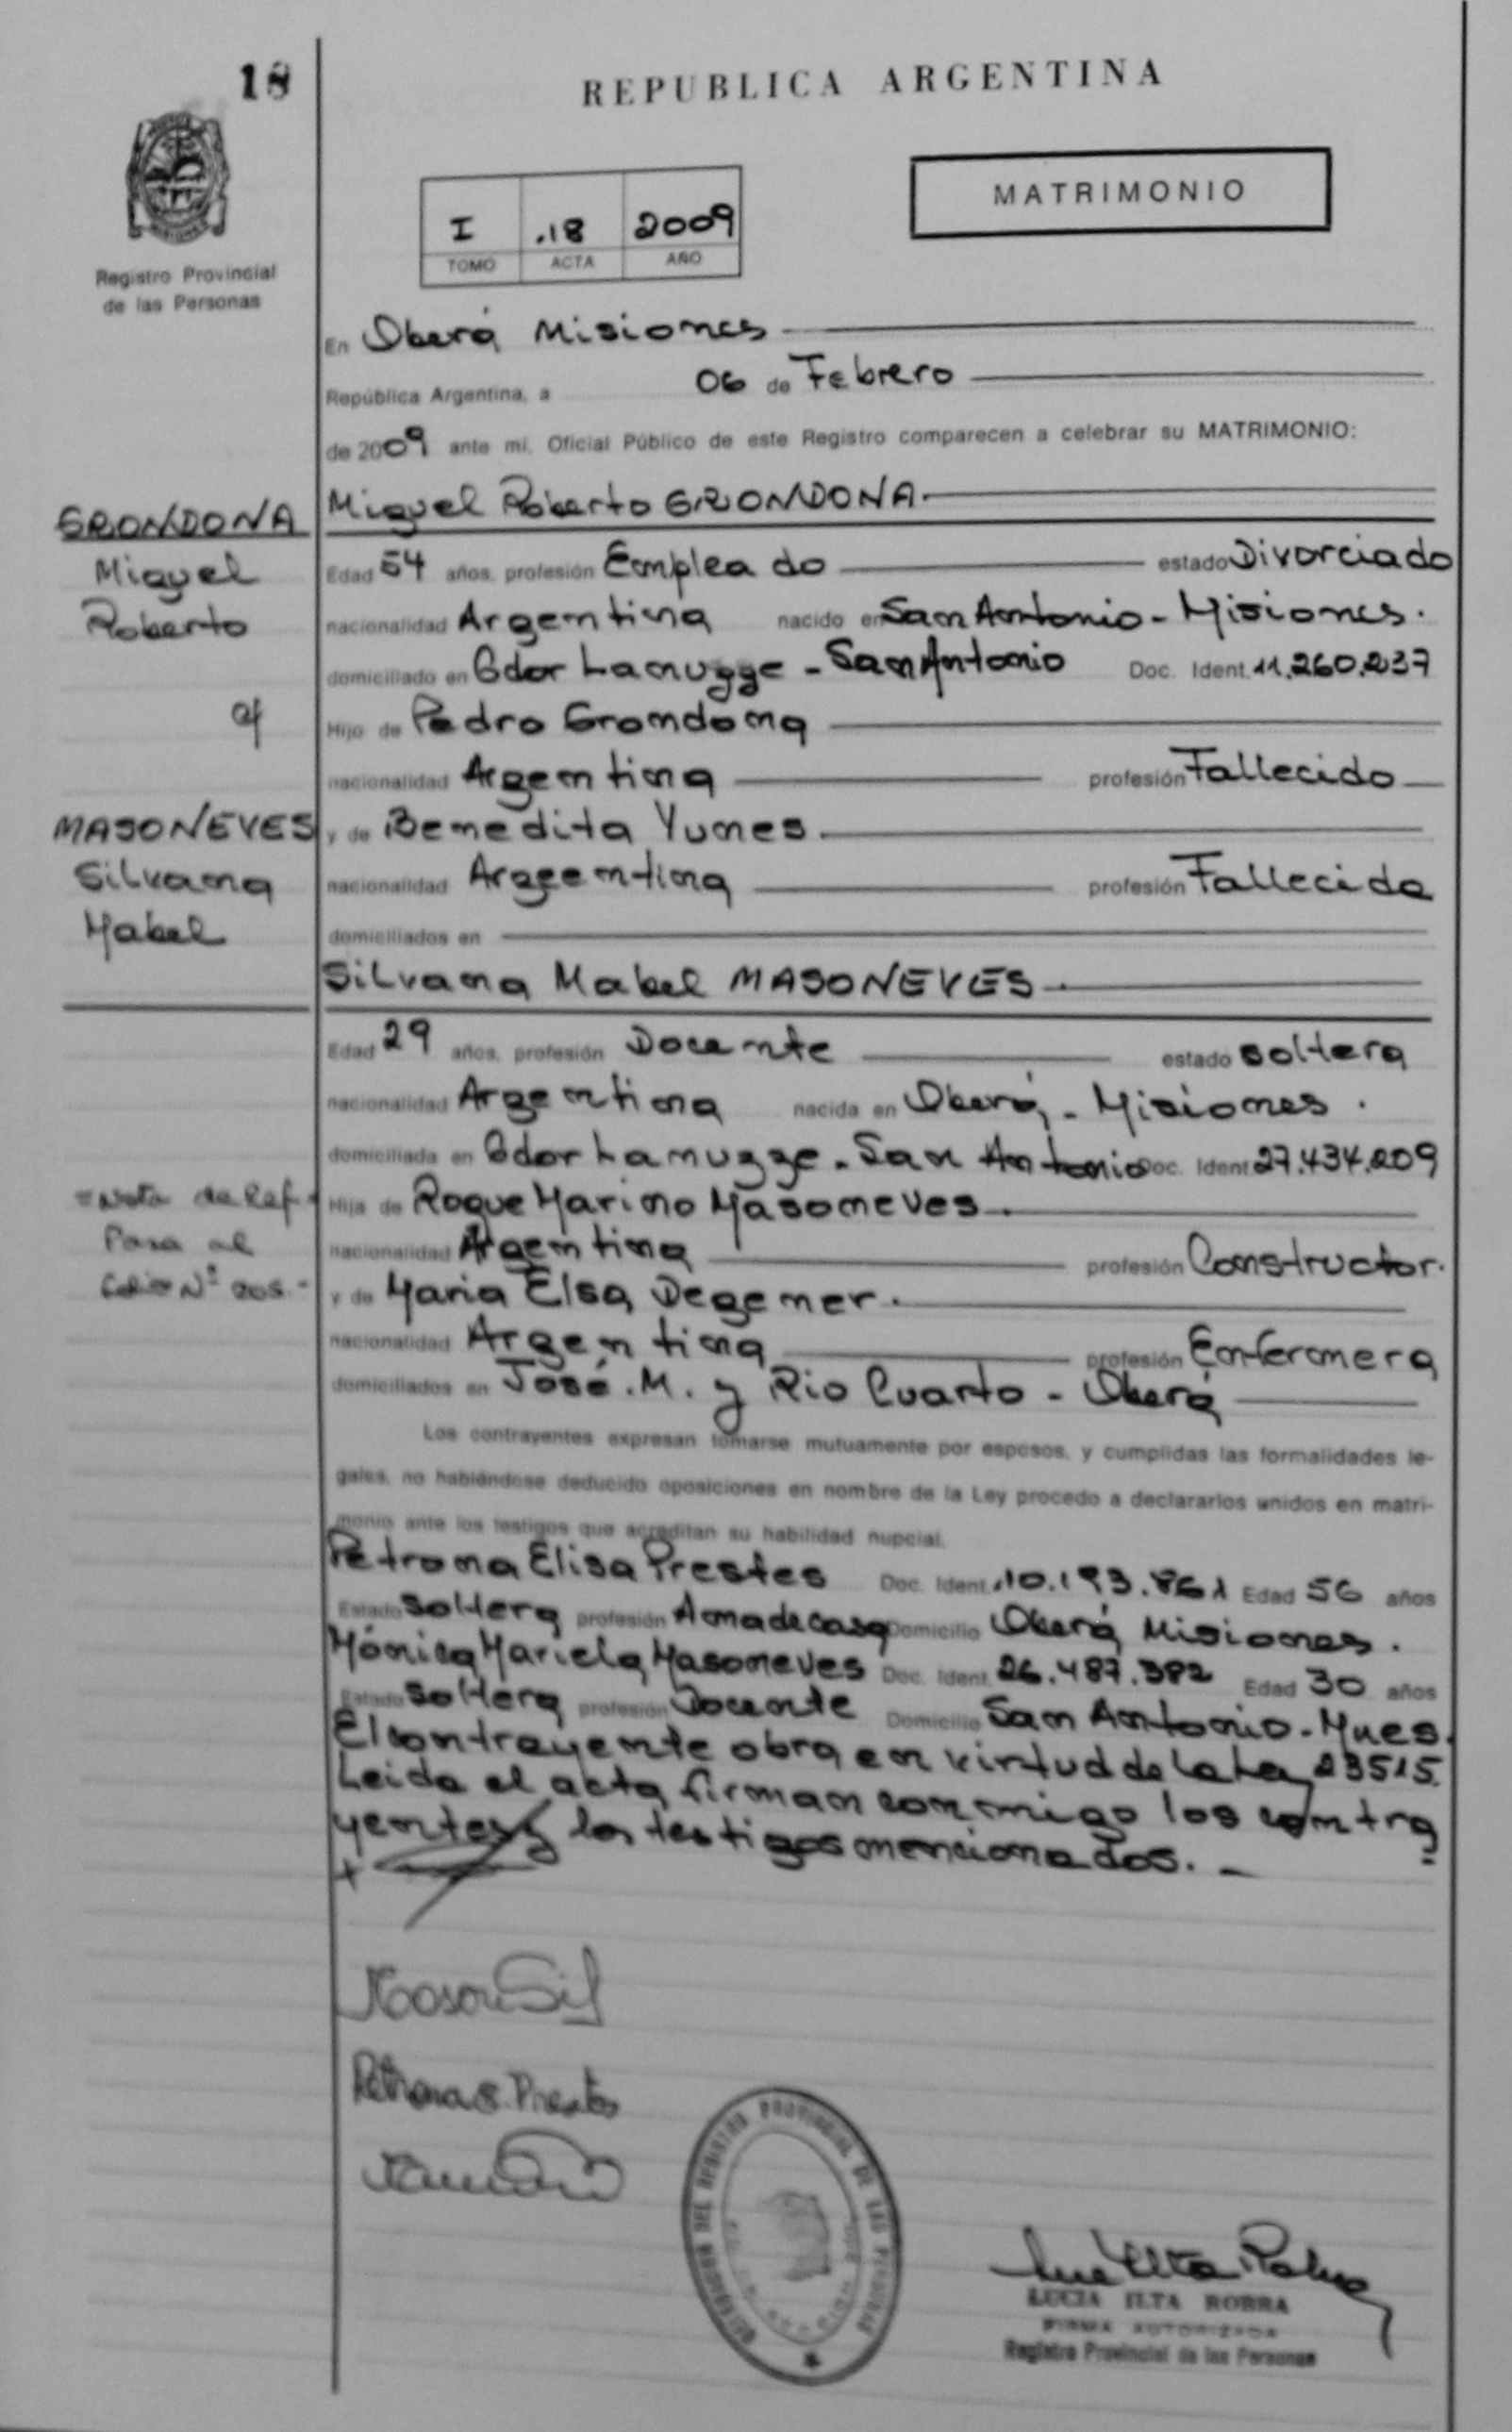 18
REPUBLICA ARGENTINA
MATRIMONIO
I .18 2009
TOMO ACTA AÑO
Registro Provincial
de las Personas
En Oberá Misiones
República Argentina, a 06 de Febrero
de 2009 ante mí, Oficial Público de este Registro comparecen a celebrar su MATRIMONIO:
GRONDONA
Miguel
Roberto
c/
MASONEVES
Silvana
Mabel
Miguel Roberto GRONDONA
Edad 54 años, profesión Empleado estado Divorciado
nacionalidad Argentina nacido en San Antonio - Misiones.
domiciliado en Gdor Lanusse - San Antonio Doc. Ident. 11.260.237
Hijo de Pedro Grondona
nacionalidad Argentina profesión Fallecido
y de Benedita Yunes.
nacionalidad Argeentina profesión Fallecida
domiciliados en
Silvana Mabel MASONEVES.
Edad 29 años, profesión Docente estado soltera
nacionalidad Argentina nacida en Oberá - Misiones.
domiciliada en Gdor Lanusse - San Antonio Doc. Ident. 27.434.209
Hija de Roque Marino Masoneves.
nacionalidad Argentina profesión Constructor.
y de Maria Elsa Degener.
nacionalidad Argentina profesión Enfermera
domiciliados en José. M. y Rio Cuarto - Oberá
= Nota de Ref.
Pasa al
Folio Nº 205.-
Los contrayentes expresan tomarse mutuamente por esposos, y cumplidas las formalidades le-
gales, no habiéndose deducido oposiciones en nombre de la Ley procedo a declararlos unidos en matri-
monio ante los testigos que acreditan su habilidad nupcial.
Petrona Elisa Prestes Doc. Ident. 10.193.861 Edad 56 años
Estado soltera profesión Ama de casa Domicilio Oberá Misiones.
Mónica Mariela Masoneves Doc. Ident. 26.487.382 Edad 30 años
Estado soltera profesión Docente Domicilio San Antonio - Mnes.
El contrayente obra en virtud de la Ley 23515.
Leida el acta firman conmigo los contra
yentes y los testigos mencionados. -
Petrona E. Prestes
DELEGACION DEL REGISTRO PROVINCIAL DE LAS PERSONAS
LUCIA ILTA ROBRA
FIRMA AUTORIZADA
Registro Provincial de las Personas